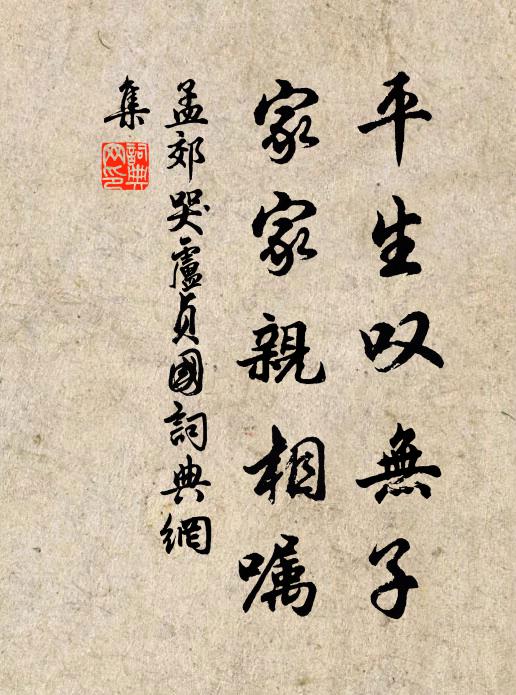 平生叹無子
家家親相嘱
孟郊哭盧貞國詞典網
集
詞典
网印